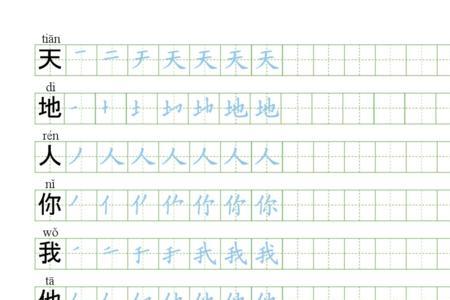 tiān
天 一 二 チ 天 天 天 天
dì
地 一 十 土 地 地 地 地
rén
人 丿 人 人 人 人 人 人
nǐ
你 丿 亻 你 你 你
wǒ
我 一 二 于 手 我 我 我
tā
他